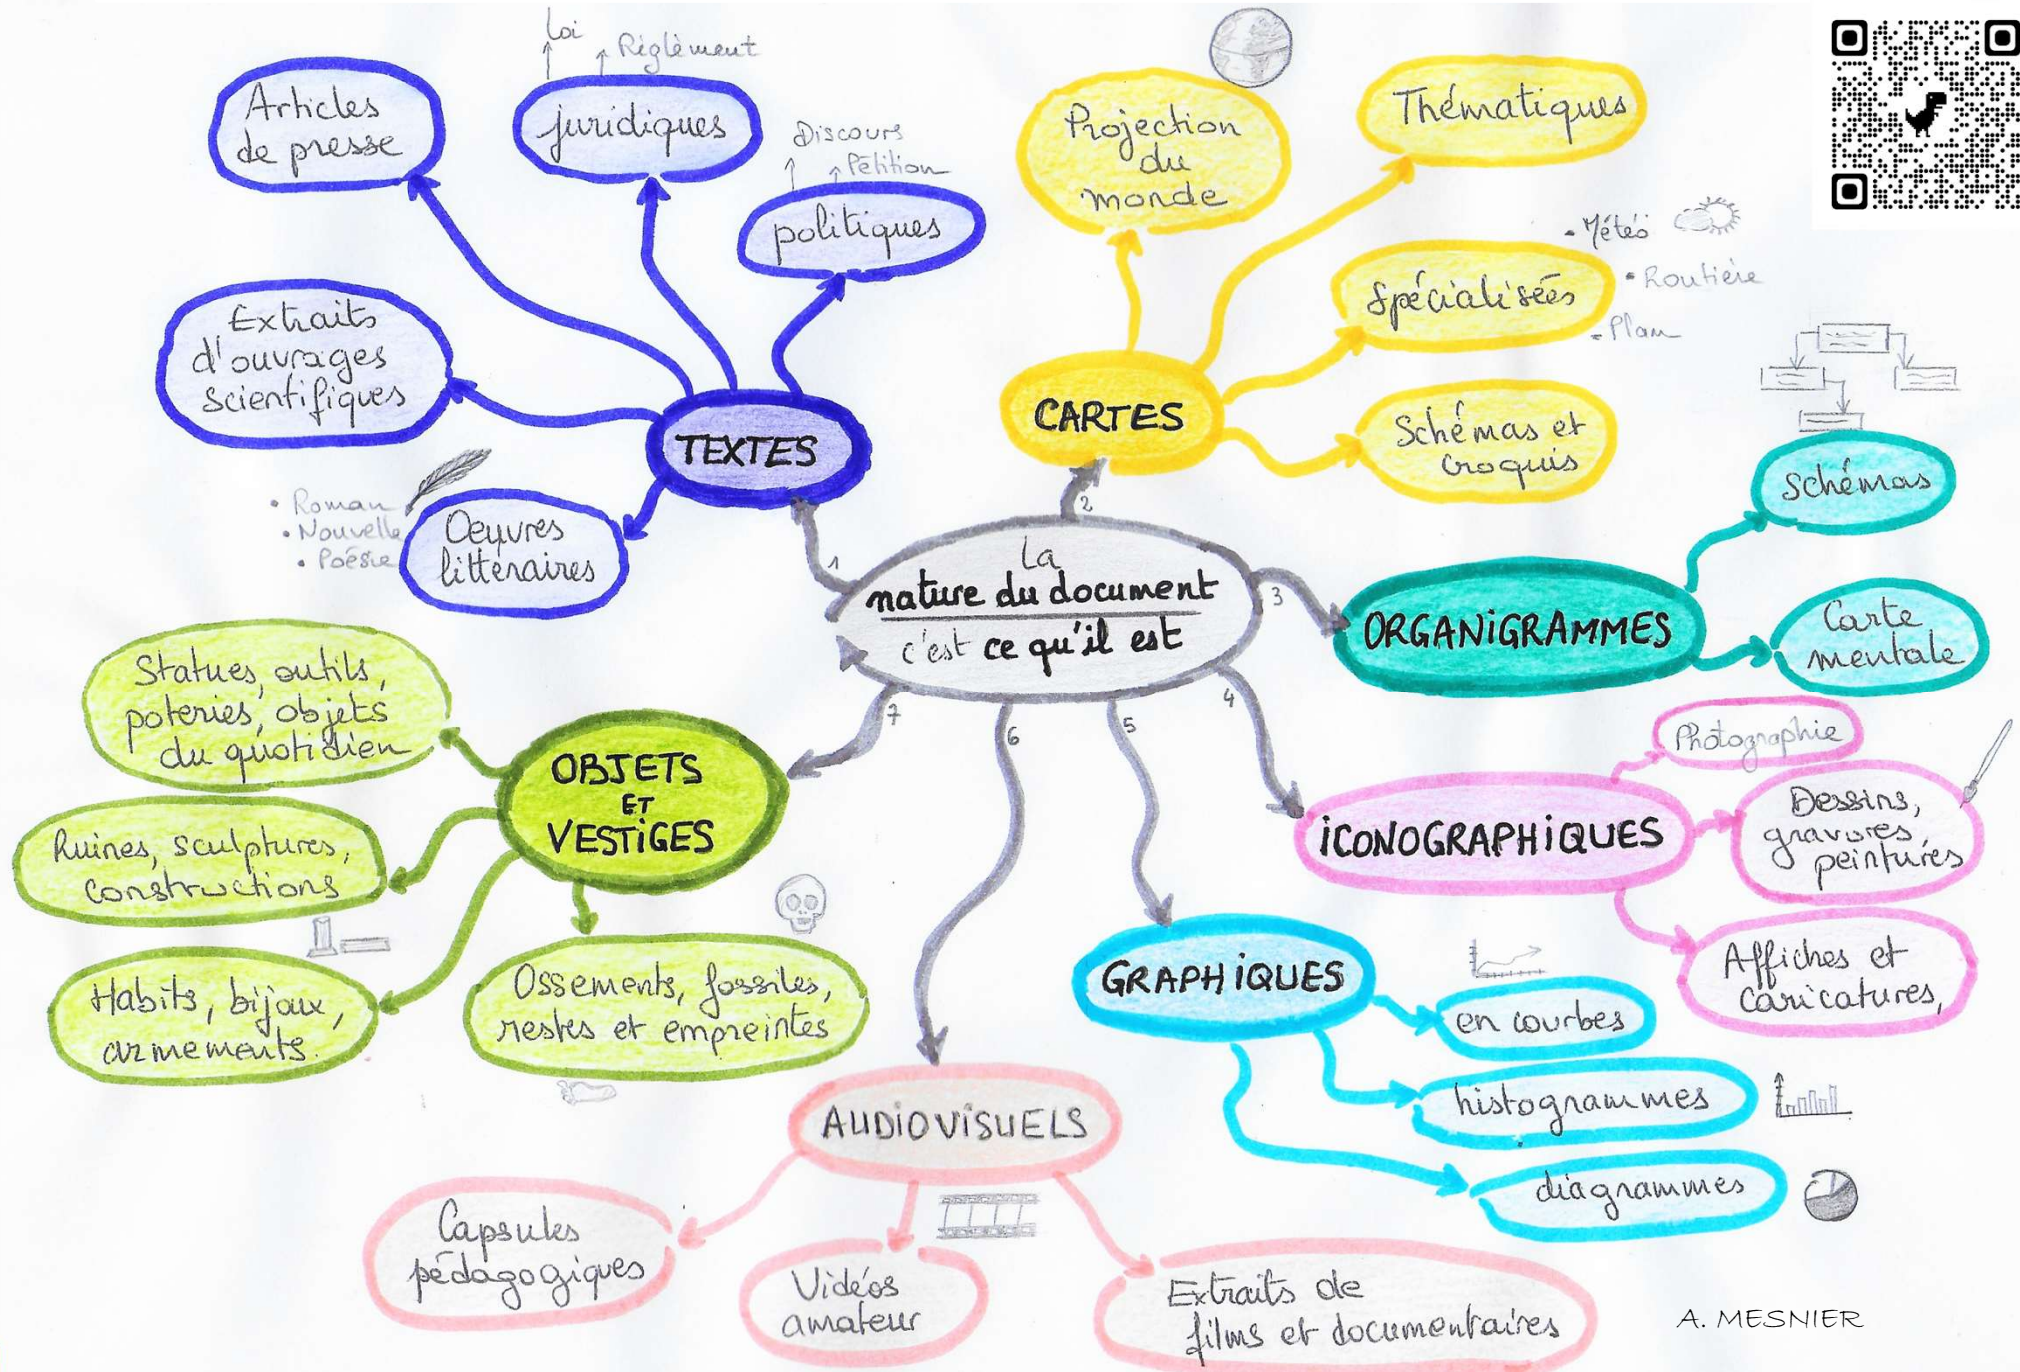 La
nature du document
c'est ce qu'il est
1
TEXTES
Articles
de presse
Loi
Règlement
juridiques
Discours
Pétition
politiques
Extraits
d'ouvrages
scientifiques
• Roman
• Nouvelle
• Poésie
Oeuvres
littéraires
2
CARTES
Projection
du
monde
Thématiques
Spécialisées
• Météo
• Routière
• Plan
Schémas et
croquis
3
ORGANIGRAMMES
Schémas
Carte
mentale
4
ICONOGRAPHIQUES
Photographie
Dessins,
gravures,
peintures
Affiches et
caricatures,
5
GRAPHIQUES
en courbes
histogrammes
diagrammes
6
AUDIOVISUELS
Capsules
pédagogiques
Vidéos
amateur
Extraits de
films et documentaires
7
OBJETS
ET
VESTIGES
Statues, outils,
poteries, objets
du quotidien
Ruines, sculptures,
constructions
Habits, bijoux,
armements.
Ossements, fossiles,
restes et empreintes
A. MESNIER